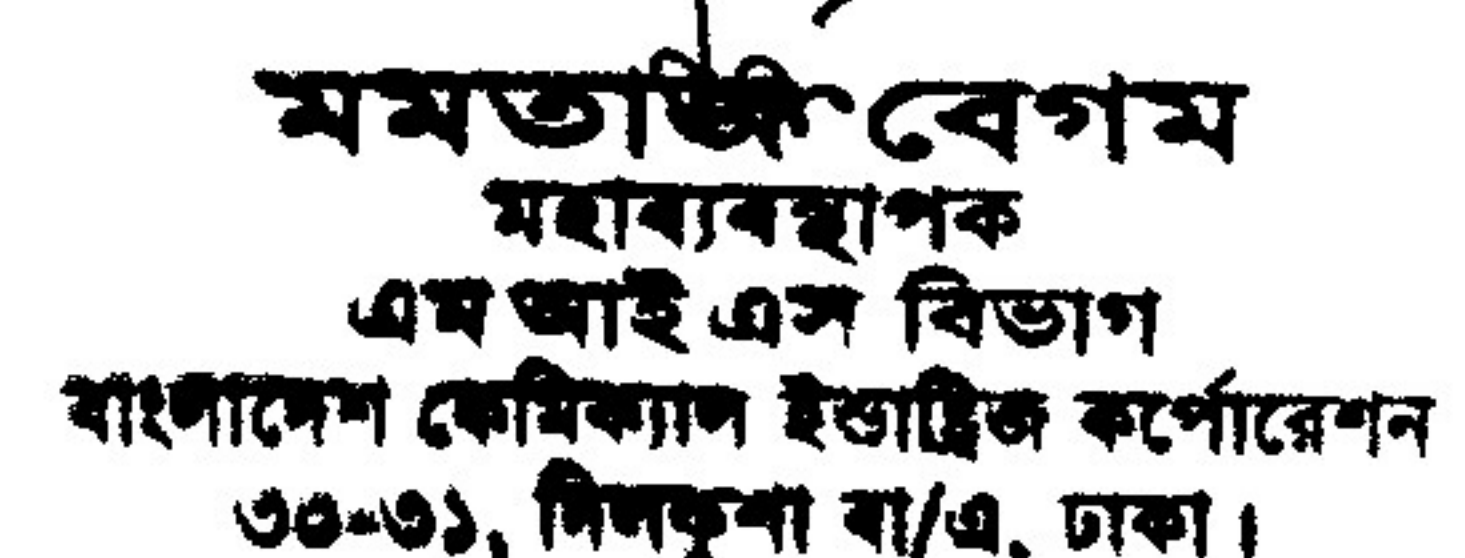 মমতাজ বেগম
মহাব্যবস্থাপক
এম আই এস বিভাগ
বাংলাদেশ কেমিক্যাল ইন্ডাষ্ট্রিজ কর্পোরেশন
৩০-৩১, দিলকুশা বা/এ, ঢাকা।